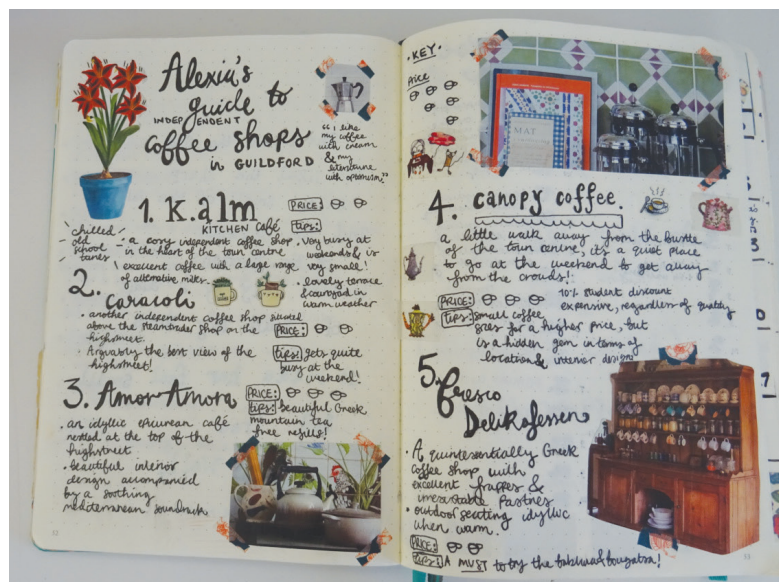 Alexia's
guide to
INDEPENDENT
coffee shops
in GUILDFORD
"I like
my coffee
with cream
& my
literature
with optimism."
1. k.alm
KITCHEN café
chilled
old
school
tunes
- a cosy independent coffee shop
in the heart of the town centre
excellent coffee with a large range
of alternative milks.
PRICE:
tips:
• very busy at
weekends & is
very small!
• lovely terrace
& courtyard in
warm weather
2. caracoli
• another independent coffee shop situated
above the Remainder shop on the
highstreet.
• Arguably the best view of the
highstreet!
PRICE:
tips: gets quite
busy at the
weekend!
3. Amor Amora
• an idyllic epicurean café
nestled at the top of the
highstreet
• beautiful interior
design accompanied
by a soothing
mediterranean soundtrack
PRICE:
tips: beautiful Greek
mountain tea
free refills!
•KEY•
Price
MAT
4. canopy coffee.
a little walk away from the bustle
of the town centre, it's a quiet place
to go at the weekend to get away
from the crowds!
PRICE:
10% student discount
expensive, regardless of quality
tips: small coffee
sizes for a higher price, but
is a hidden gem in terms of
location & interior design
5. fresco
Delikafessen
• A quintessentially Greek
coffee shop with
excellent frappes &
irresistable pastries
• outdoor seating idyllic
when warm.
PRICE:
tips: A MUST to try the